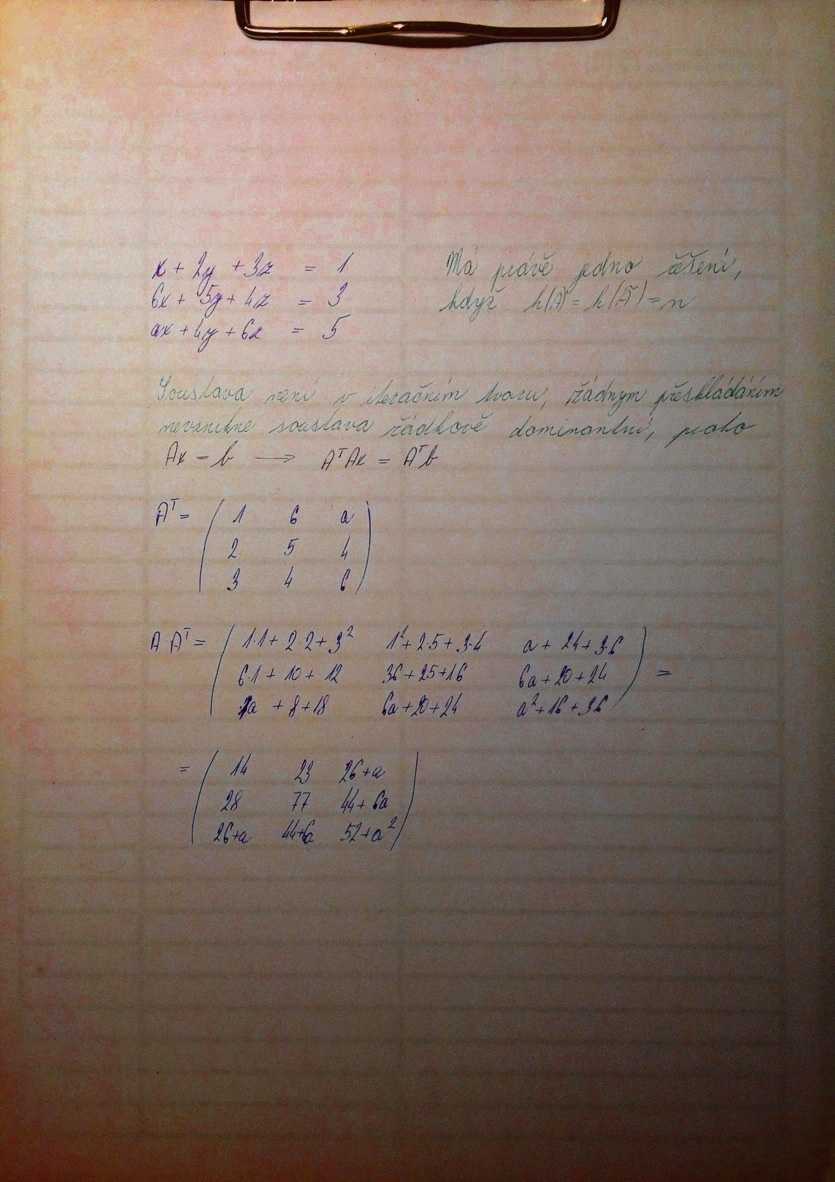 x + 2y + 3z = 1
6x + 5y + 4z = 3
ax + 4y + 6z = 5
Má právě jedno řešení,
když h(A) = h(A̅) = n
Soustava není v iteračním tvaru, žádným přeskládáním
nevznikne soustava řádkově dominantní, proto
Ax = b → AᵀAx = Aᵀb
Aᵀ = ( 1 6 a
2 5 4
3 4 6 )
A Aᵀ = ( 1·1 + 2·2 + 3² 1² + 2·5 + 3·4 a + 24 + 3·6
6·1 + 10 + 12 36 + 25 + 16 6a + 20 + 24
a + 8 + 18 6a + 20 + 24 a² + 16 + 36 ) =
= ( 14 23 26+a
28 77 44+6a
26+a 44+6a 52+a² )